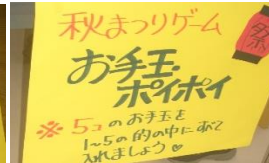 秋まつりゲーム
お手玉・
ポイポイ
※ 5コのお手玉を
1~5の的の中にすべて
入れましょう♡